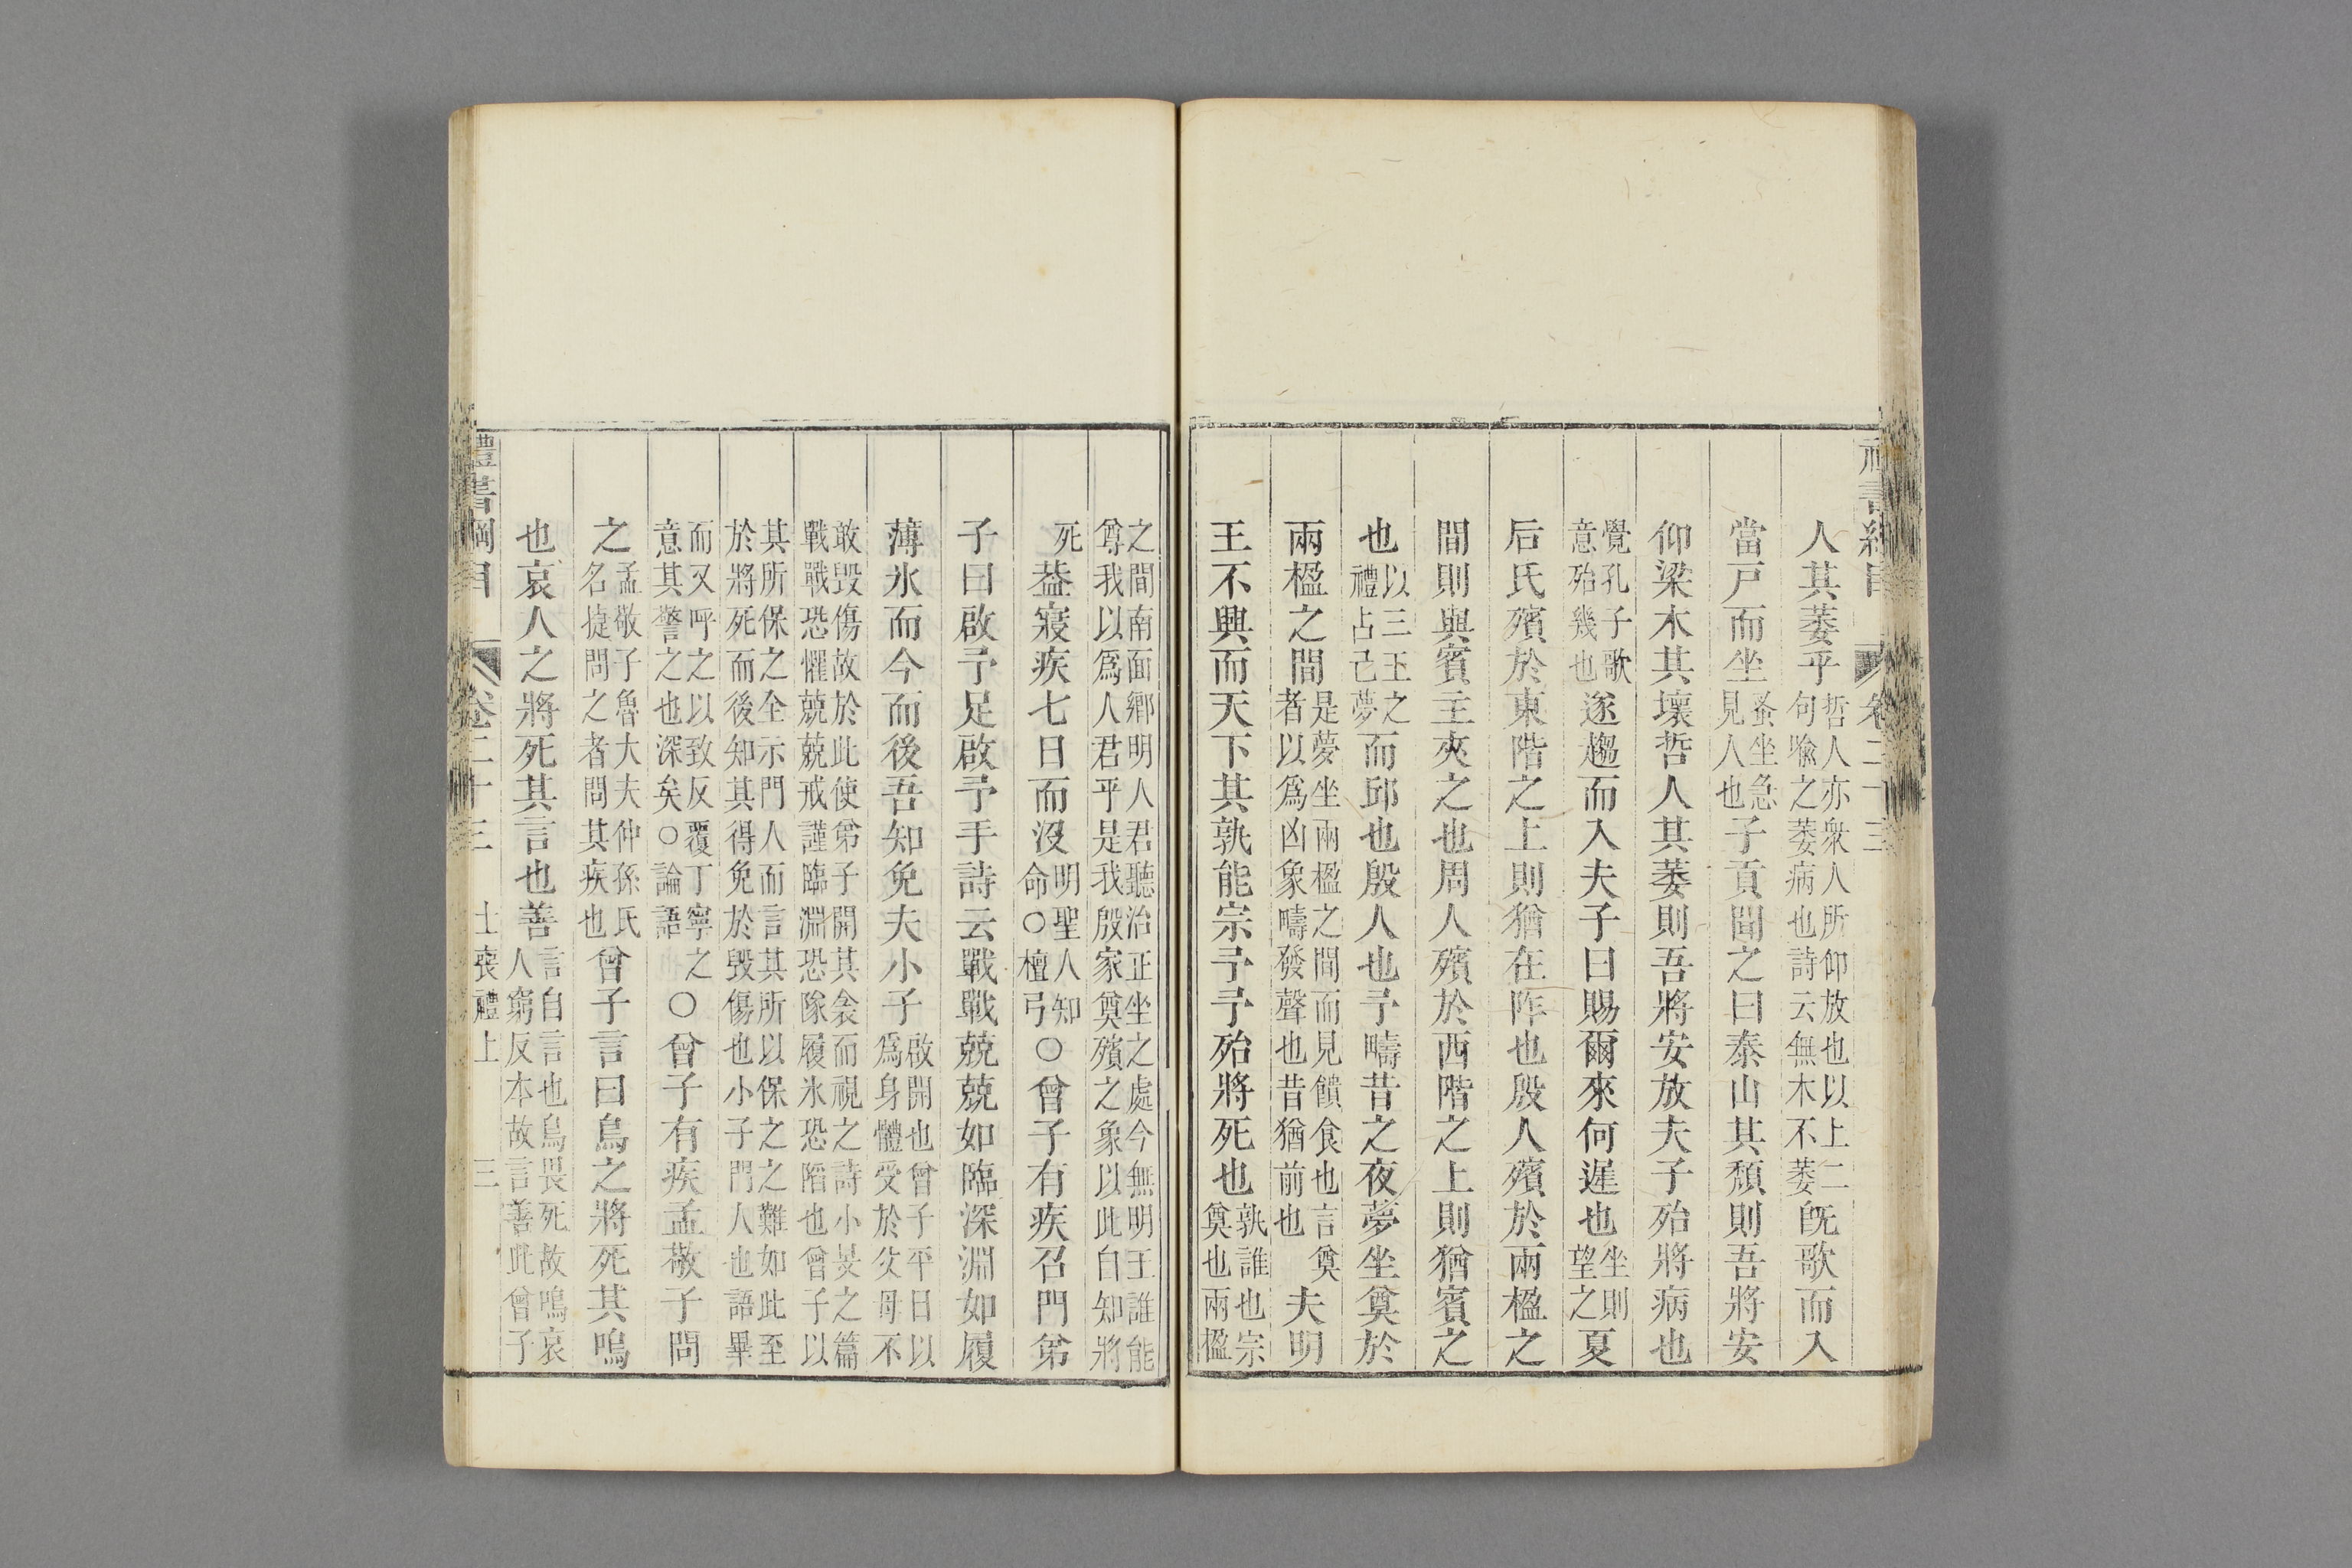 人其萎乎哲人亦衆人所仰放也以上二句喩之萎病也詩云無木不萎旣歌而入
當戸而坐蚤坐急見人也子貢聞之曰泰山其頹則吾將安
仰梁木其壞哲人其萎則吾將安放夫子殆將病也
覺孔子歌意殆幾也遂趨而入夫子曰賜爾來何遲也坐則望之夏
后氏殯於東階之上則猶在阼也殷人殯於兩楹之
間則與賓主夾之也周人殯於西階之上則猶賓之
也以三王之禮占己夢而邱也殷人也予疇昔之夜夢坐奠於
兩楹之間是夢坐兩楹之間而見饋食也言奠者以爲凶象疇發聲也昔猶前也夫明
王不興而天下其孰能宗予予殆將死也孰誰也宗奠也兩楹
之間南面鄉明人君聽治正坐之處今無明王誰能尊我以爲人君乎是我殷家奠殯之象以此自知將
死葢寢疾七日而沒明聖人知命○檀弓○曾子有疾召門弟
子曰啟予足啟予手詩云戰戰兢兢如臨深淵如履
薄氷而今而後吾知免夫小子啟開也曾子平日以爲身體受於父母不
敢毁傷故於此使弟子開其衾而視之詩小旻之篇戰戰恐懼兢兢戒謹臨淵恐隊履氷恐陷也曾子以
其所保之全示門人而言其所以保之之難如此至於將死而後知其得免於毁傷也小子門人也語畢
而又呼之以致反覆丁寧之意其警之也深矣○論語○曾子有疾孟敬子問
之孟敬子魯大夫仲孫氏名㨗問之者問其疾也曾子言曰鳥之將死其鳴
也哀人之將死其言也善言自言也鳥畏死故鳴哀人窮反本故言善此曾子
禮書綱目 卷二十三 士喪禮上 三